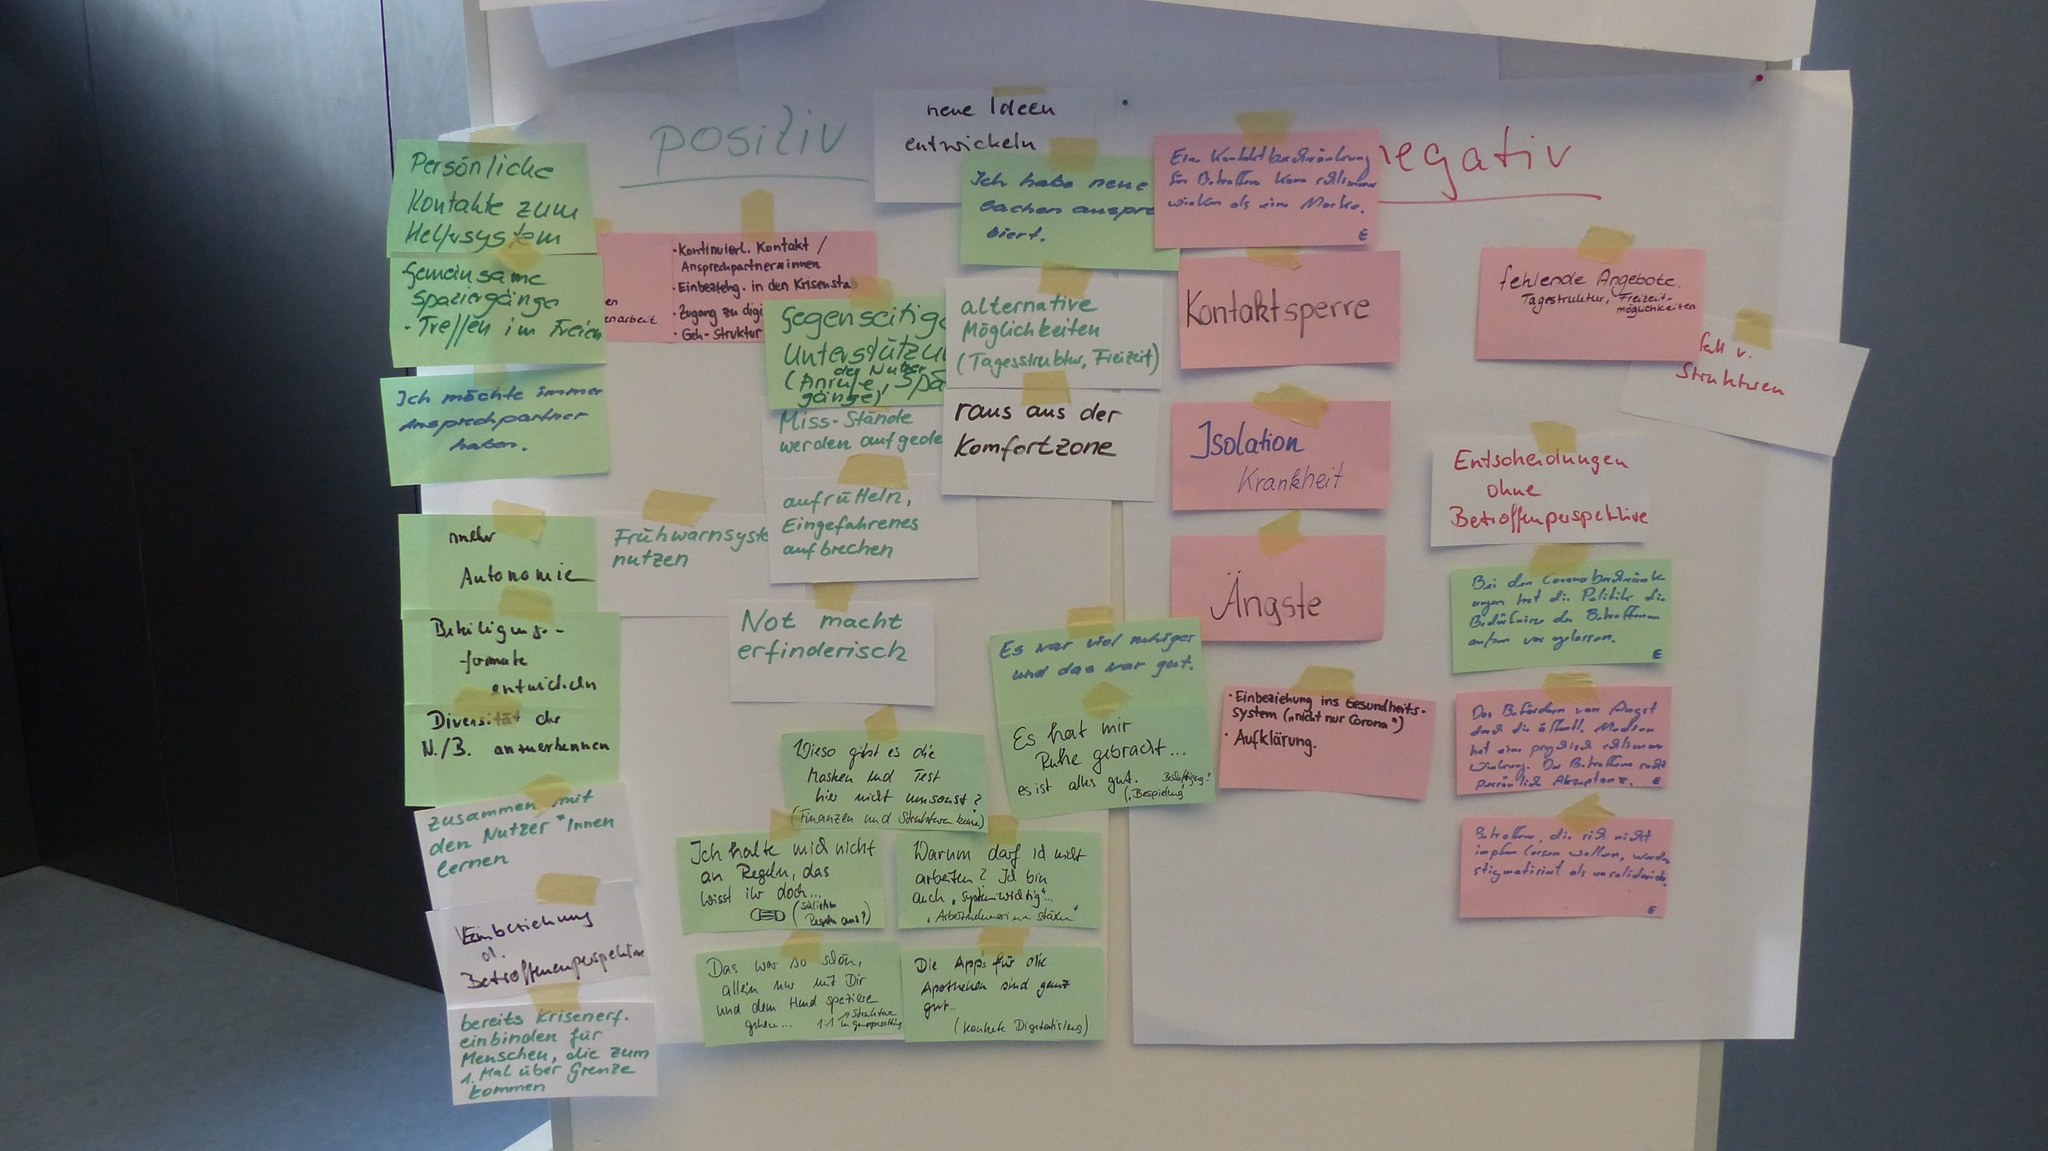 positiv
negativ
neue Ideen
entwickeln
Persönliche
Kontakte zum
Helfersystem
Gemeinsame
Spaziergänge
- Treffen im Freien
Ich möchte immer
Ansprechpartner
haben.
mehr
Autonomie
Beteiligungs-
formate
entwickeln
Diversität der
N./B. anzuerkennen
zusammen mit
den Nutzer*Innen
lernen
Einbeziehung
d.
Betroffenenperspektive
bereits Krisenerf.
einbinden für
Menschen, die zum
1. Mal über Grenze
kommen
enarbeit
• Kontinuierl. Kontakt /
Ansprechpartner*innen
• Einbeziehg. in den Krisenstab
• Zugang zu digi
• Geh-Struktur
Gegenseitige
Unterstützu
der Nutzer
(Anrufe, Spa
gänge)
Miss-Stände
werden aufgede
aufrütteln,
Eingefahrenes
aufbrechen
Frühwarnsyste
nutzen
Not macht
erfinderisch
Ich habe neue
Sachen auspro
biert.
alternative
Möglichkeiten
(Tagesstruktur, Freizeit)
raus aus der
Komfortzone
Es war viel ruhiger
und das war gut.
Es hat mir
Ruhe gebracht...
es ist alles gut.
Wieso gibt es die
Masken und Test
hier nicht umsonst?
(Finanzen und Strukturen
Ich halte mich nicht
an Regeln, das
wisst ihr doch...
Warum darf ich nicht
arbeiten? Ich bin
auch „systemwichtig"...
Das war so schön,
allein nur mit Dir
und dem Hund spazieren
gehen...
1:1
Struktur
in Gruppensetting
Die Apps für die
Apotheken sind ganz
gut...
(konkrete Digitalisierung)
Eine Kontaktbeschränkung
für Betroffene kann schlimmer
wirken als eine Maske.
E
Kontaktsperre
Isolation
Krankheit
Ängste
• Einbeziehung ins Gesundheits-
system („nicht nur Corona")
• Aufklärung.
fehlende Angebote,
Tagesstruktur, Freizeit-
möglichkeiten
fall v.
Strukturen
Entscheidungen
ohne
Betroffenperspektive
Bei den Coronabeschränk
ungen hat die Politik die
Bedürfnisse der Betroffenen
außen vor gelassen.
E
Das Befördern von Angst
durch die öffentl. Medien
hat eine psychisch schlimme
Wirkung. Der Betroffene sucht
persönlich Akzeptanz.
E
Betroffene, die sich nicht
impfen lassen wollen, werden
stigmatisiert als unsolidarisch.
E